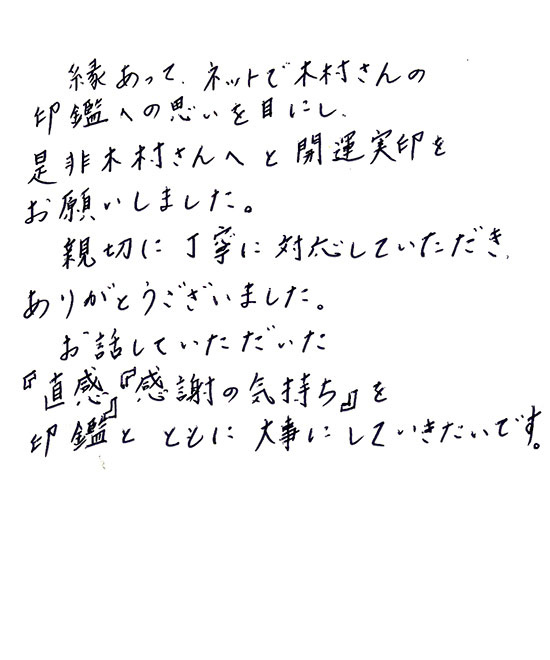 縁あって、ネットで木村さんの
印鑑への思いを目にし、
是非木村さんへと開運実印を
お願いしました。
親切に丁寧に対応していただき、
ありがとうございました。
お話していただいた
『直感』『感謝の気持ち』を
印鑑とともに大事にしていきたいです。